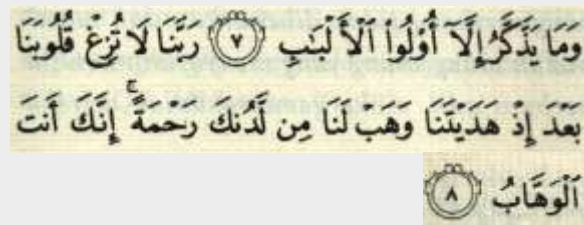 وَمَا يَذَّكَّرُ إِلَّآ أُو۟لُوا۟ ٱلْأَلْبَٰبِ ٧ رَبَّنَا لَا تُزِغْ قُلُوبَنَا
بَعْدَ إِذْ هَدَيْتَنَا وَهَبْ لَنَا مِن لَّدُنكَ رَحْمَةً ۚ إِنَّكَ أَنتَ
ٱلْوَهَّابُ ٨